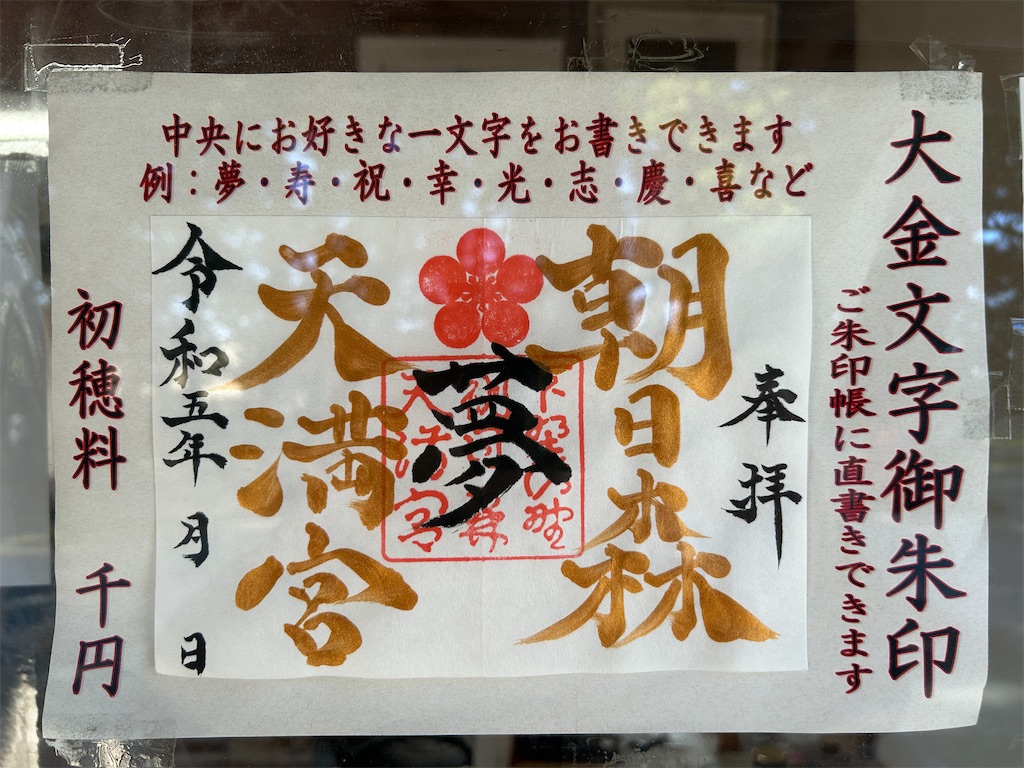 中央にお好きな一文字をお書きできます
例：夢・寿・祝・幸・光・志・慶・喜など
大金文字御朱印
ご朱印帳に直書きできます
奉拝
朝日森
夢
天満宮
天満宮
令和五年 月 日
初穂料 千円